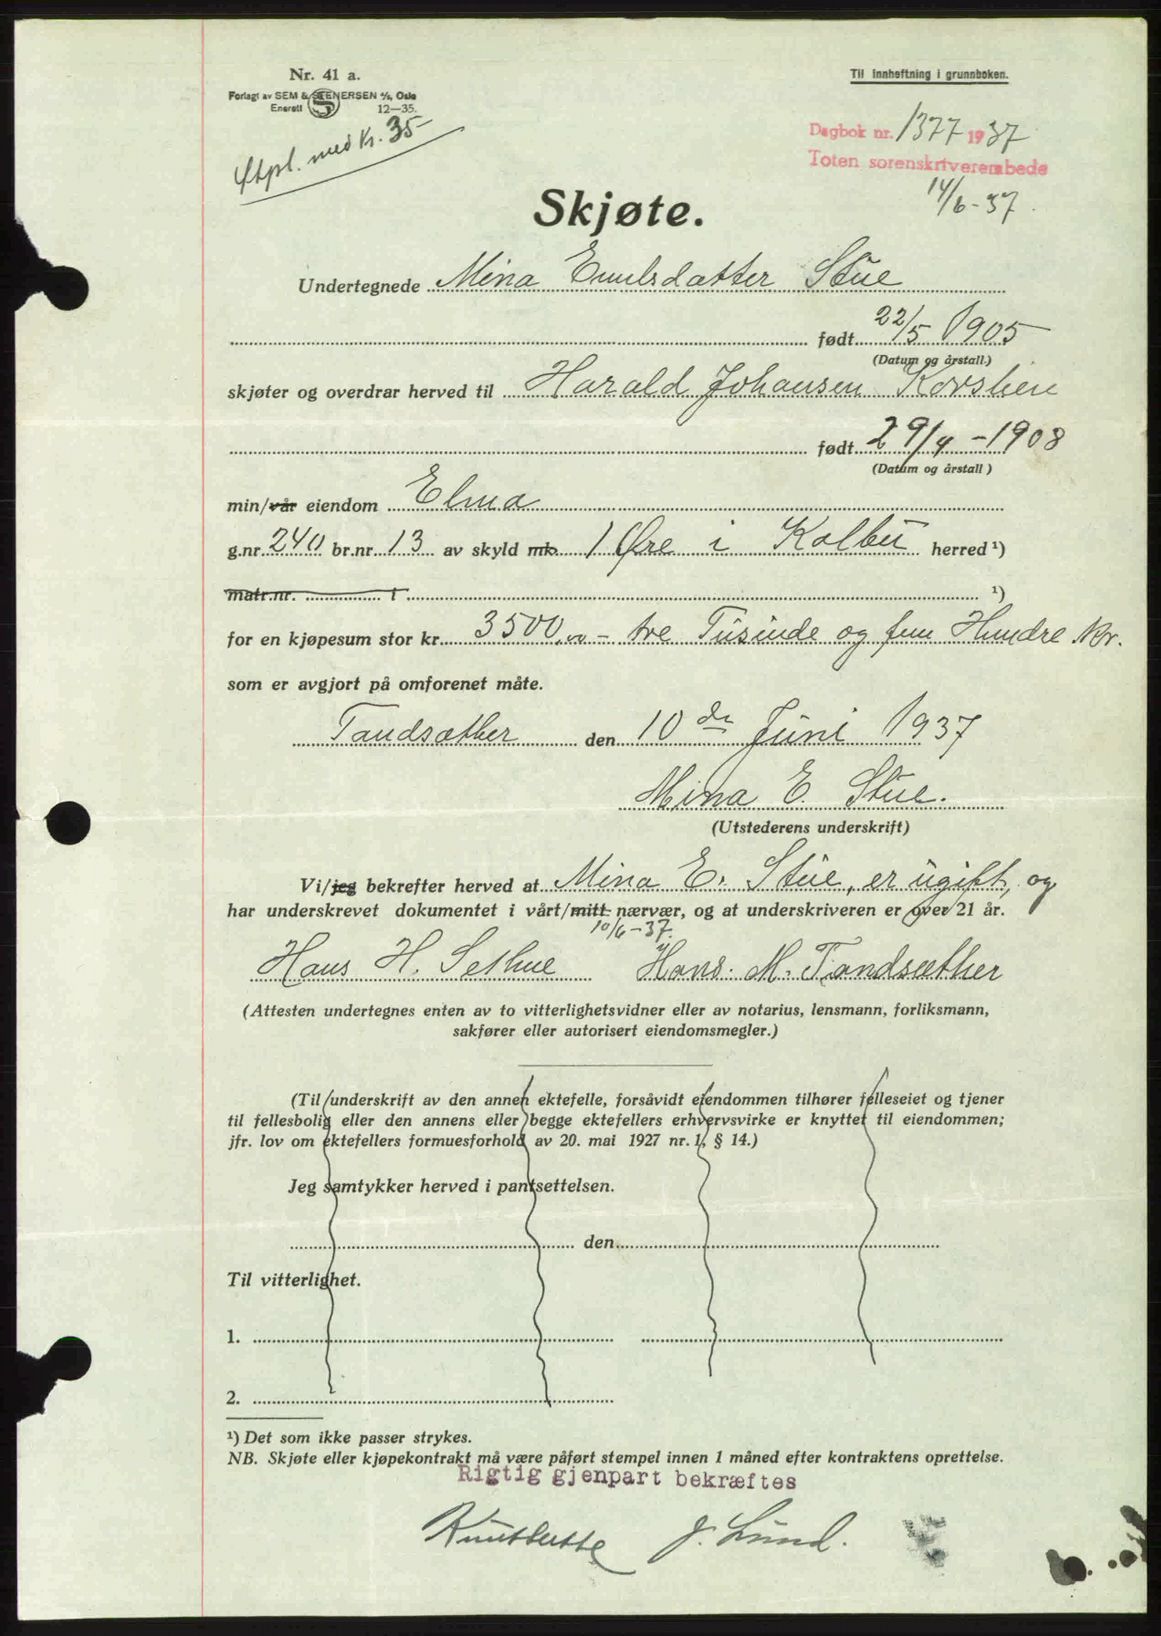 Nr. 41 a.
Forlagt av SEM & STENERSEN A/S, Oslo
Enerett 12—35.
Stpl. med kr. 35-
Til innheftning i grunnboken.
Dagbok nr. 1377 1937
Toten sorenskriverembede
14/6-37.
Skjøte.
Undertegnede Mina Emilsdatter Stue
født 22/5 1905
(Datum og årstall.)
skjøter og overdrar herved til Harald Johansen
født 29/4-1908
(Datum og årstall)
min/vår eiendom Elma
g.nr. 240 br.nr. 13 av skyld mk. 1 Øre i Kolbu herred ¹)
matr.nr. i ¹)
for en kjøpesum stor kr. 3500,00 - tre Tusinde og fem Hundre Kr.
som er avgjort på omforenet måte.
Tandsæther den 10 de Juni 1937
Mina E. Stue.
(Utstederens underskrift)
Vi/jeg bekrefter herved at Mina E. Stue, er ugift, og
har underskrevet dokumentet i vårt/mitt nærvær, og at underskriveren er over 21 år.
10/6-37.
Hans H. Sethne Hans. M. Tandsæther
(Attesten undertegnes enten av to vitterlighetsvidner eller av notarius, lensmann, forliksmann,
sakfører eller autorisert eiendomsmegler.)
(Til underskrift av den annen ektefelle, forsåvidt eiendommen tilhører felleseiet og tjener
til fellesbolig eller den annens eller begge ektefellers erhvervsvirke er knyttet til eiendommen;
jfr. lov om ektefellers formuesforhold av 20. mai 1927 nr. 1, § 14.)
Jeg samtykker herved i pantsettelsen.
den
Til vitterlighet.
1.
2.
¹) Det som ikke passer strykes.
NB. Skjøte eller kjøpekontrakt må være påført stempel innen 1 måned efter kontraktens oprettelse.
Rigtig gjenpart bekræftes
J. Lund.